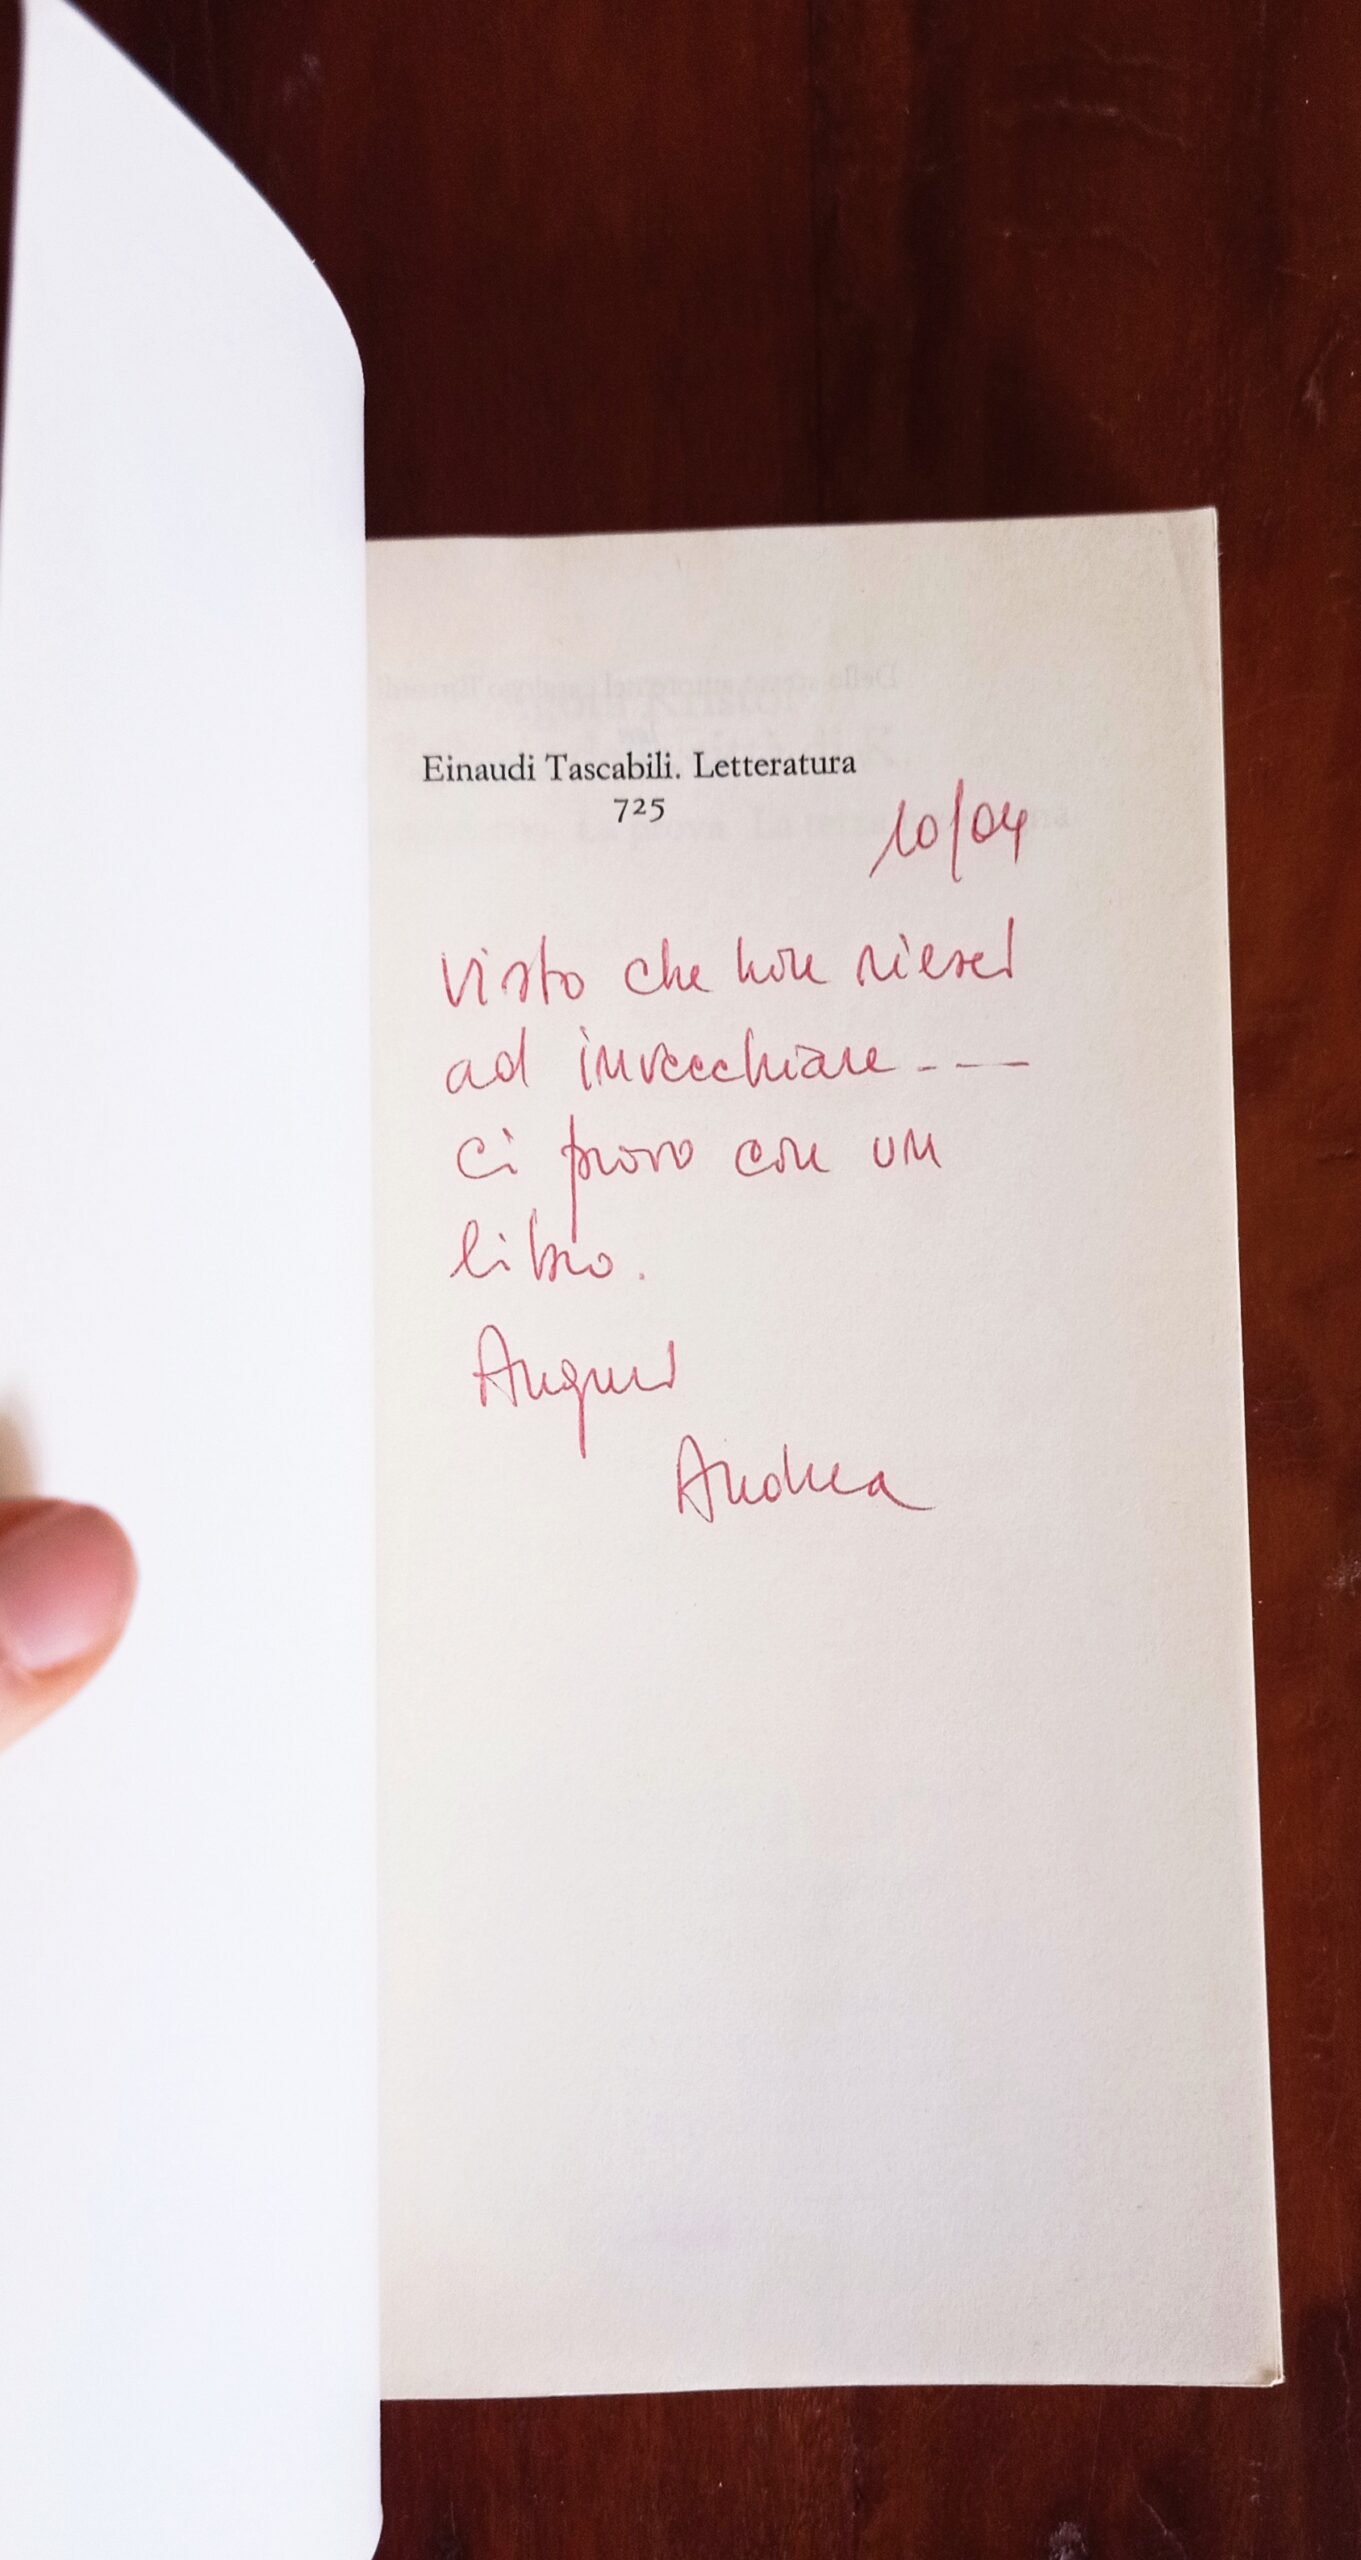 Einaudi Tascabili. Letteratura
725
10/04
Visto che non riesci
ad invecchiare ----
ci provo con un
libro.
Auguri
Andrea